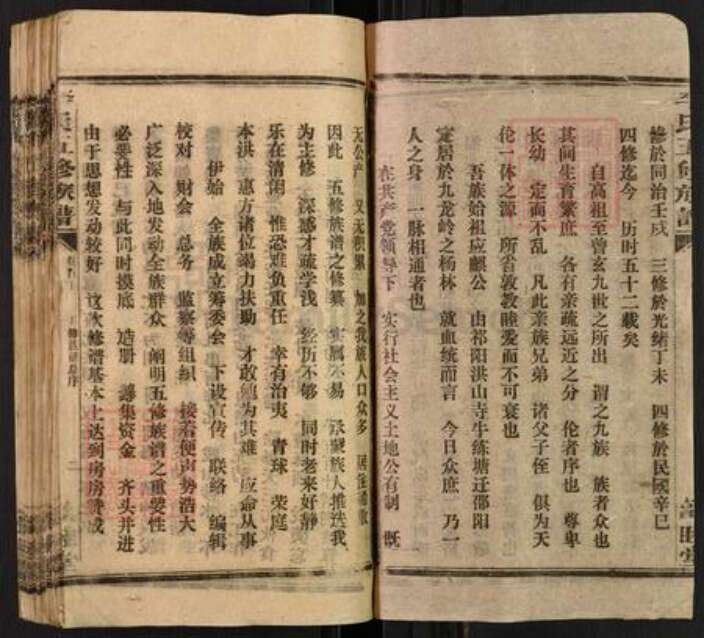 修於同治壬戌 三修於光绪丁未 四修於民國辛巳
四修迄今 历时五十二载矣
自高祖至曾玄九世之所出 谓之九族 族者众也
其间生育繁庶 各有亲疏远近之分 伦者序也 尊卑
长幼 定而不乱 凡此亲族兄弟 诸父子侄 俱为天
伦一体之源 所当敦敦睦爱而不可衰也
吾族始祖应麒公 由祁阳洪山寺牛练塘迁邵阳
定居於九龙岭之杨林 就血统而言 今日众庶 乃一
人之身 一脉相通者也
在共产党领导下 实行社会主义土地公有制 既
无公产 又无积累 加之我族人口众多 居住
因此 五修族谱之修纂 实属不易 族人推选我
为主修 深感才疏学浅 经历不够 同时老来好静
乐在清闲 惟恐难负重任 幸有治夷 青球 荣庭
本洪 惠方诸位竭力扶助 才敢勉为其难 应命从事
伊始 全族成立筹委会 下设宣传 联络 编辑
校对 财会 总务 监察等组织 接着便声势浩大
广泛深入地发动全族群众 阐明五修族谱之重要性
必要性 与此同时摸底 造册 筹集资金 齐头并进
由于思想发动较好 这次修谱基本上达到房房赞成
氏五修族谱
序
二